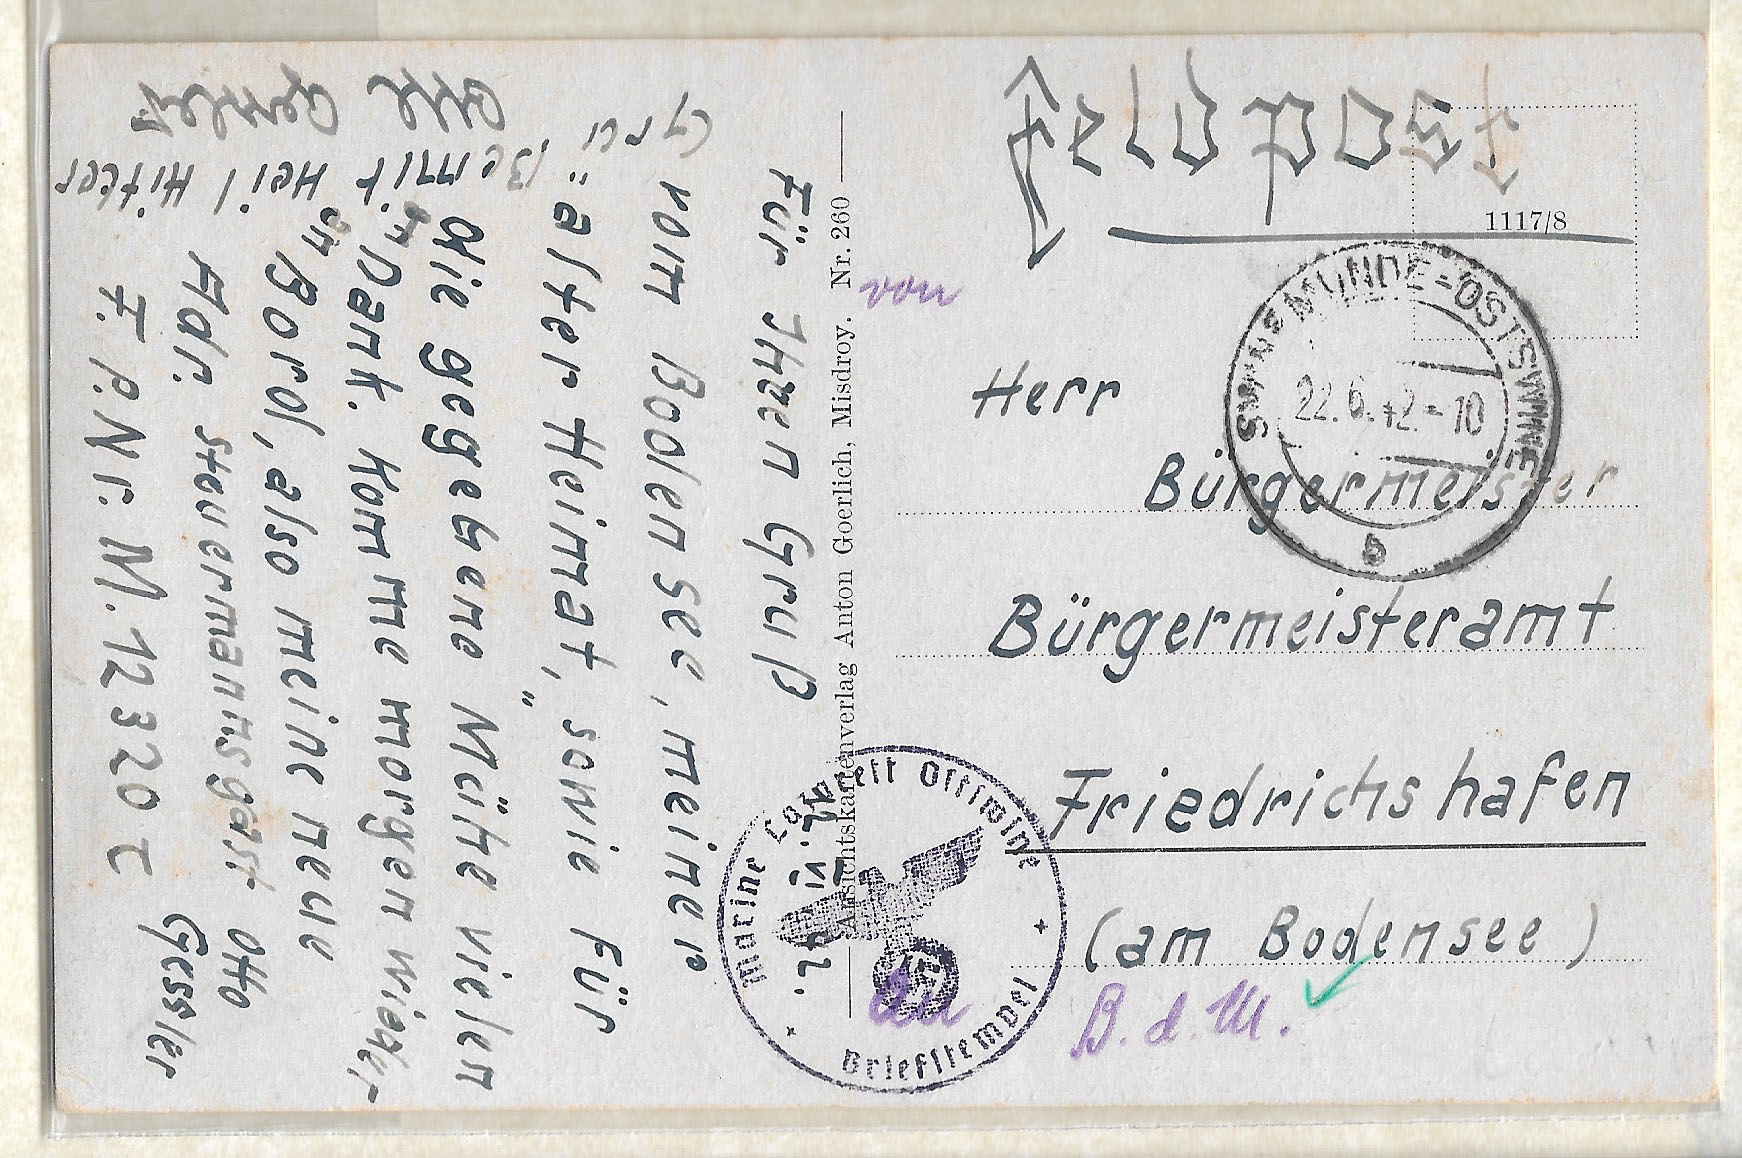 Feldpost
1117/8
SWINEMÜNDE-OSTSWINE
22.6.42-10
b
von
Herr
Bürgermeister
Bürgermeisteramt
Friedrichshafen
(am Bodensee)
an
B. d. M.
Marine Lazarett Ostswine
Briefstempel
22. VI. 42.
Ansichtskartenverlag Anton Goerlich, Misdroy. Nr. 260
Für Ihren Gruß
vom Bodensee, meiner
"alter Heimat," sowie für
die gegebene Mühe vielen
Dank. Komme morgen wieder
an Bord, also meine neue
Adr. Steuermannsgast Otto Gessler
F.P.Nr. M. 12320 C
Heil Hitler